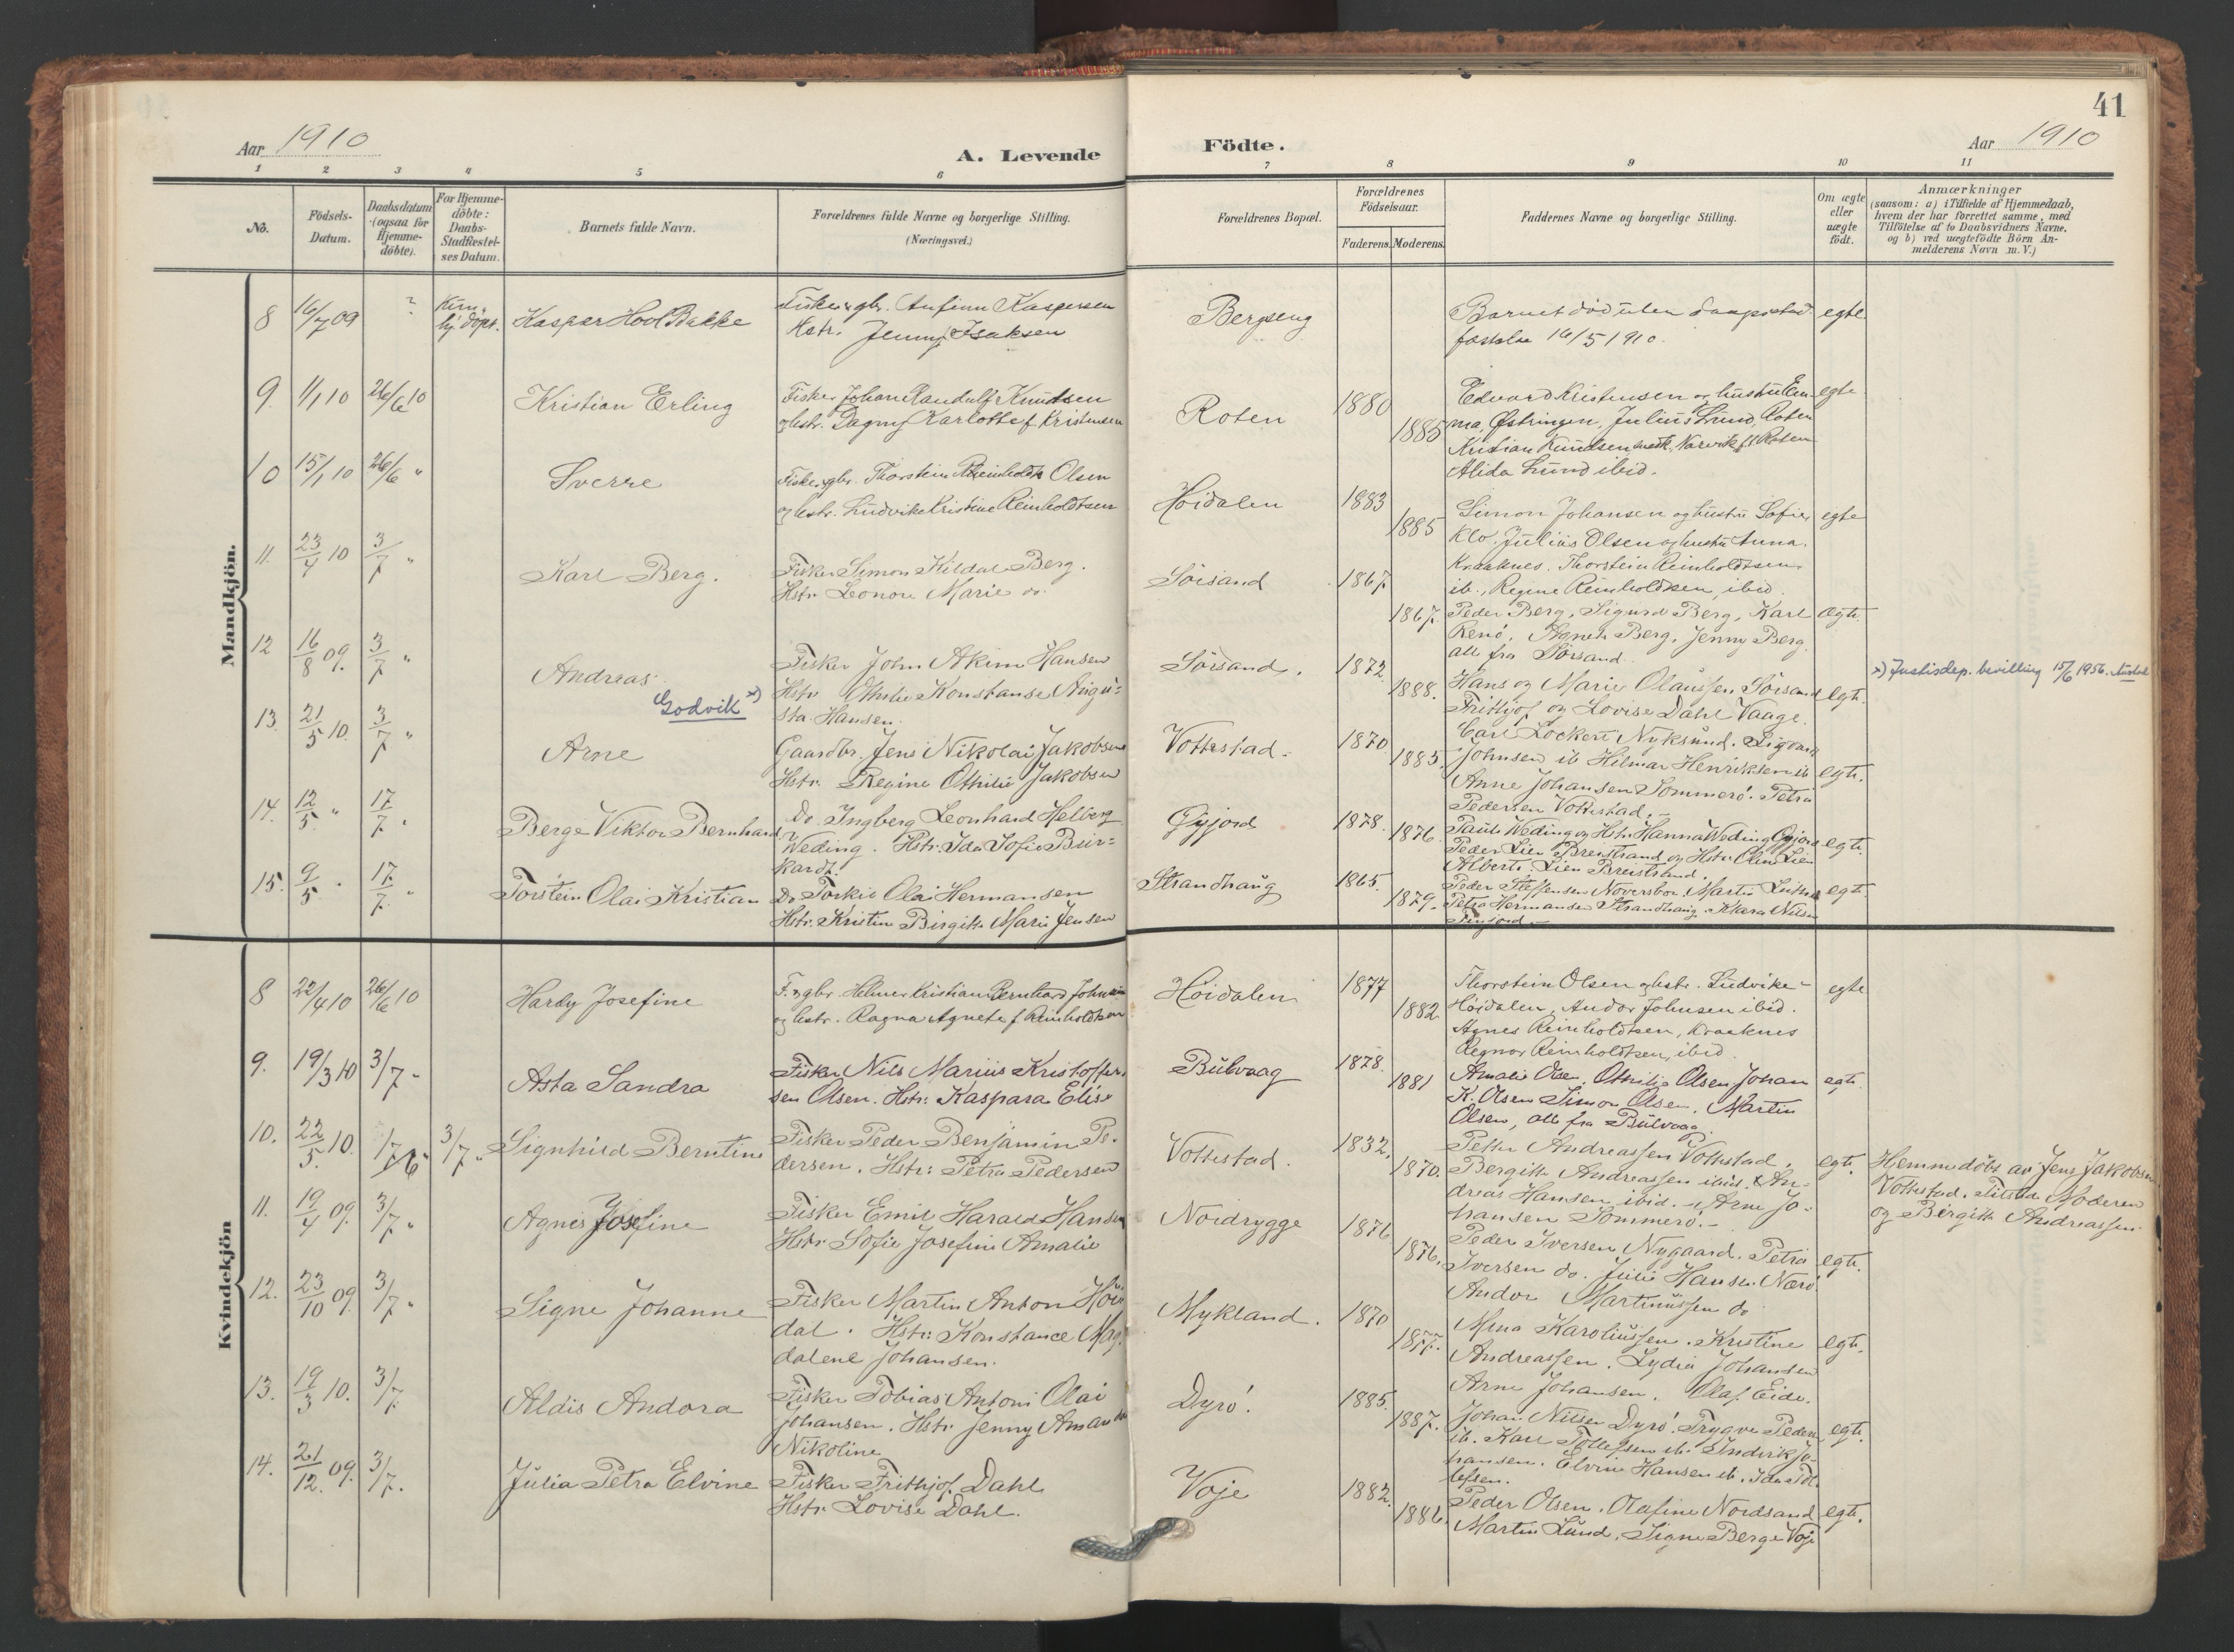 41
Aar 1910
A. Levende Födte.
Aar 1910
1 2 3 4 5 6 7 8 9 10 11
No.
Födsels-Datum.
Daabsdatum (ogsaa for Hjemme-döbte).
For Hjemme-döbte: Daabs-Stadfæstel-ses Datum.
Barnets fulde Navn.
Forældrenes fulde Navne og borgerlige Stilling.
(Næringsvei.)
Forældrenes Bopæl.
Forældrenes Födselsaar.
Faderens. Moderens.
Faddernes Navne og borgerlige Stilling.
Om ægte eller uægte födt.
Anmærkninger
(saasom: a) i Tilfælde af Hjemmedaab,
hvem der har forrettet samme, med
Tilföielse af to Daabsvidners Navne.
og b) ved uægtefödte Börn An-
melderens Navn m. V.)
Mandkjön.
8 16/7 09 ? Kun hj. döpt. Kaspar Hool Bakke
Fisker & gbr. Anfinn Kaspersen
Hstr. Jenny Isaksen
Bergseng
Barnet död uten daapsstad-
fæstelse 16/5 1910.
egte
9. 1/1 10 26/6 10 Kristian Erling
Fisker Johan Randulf Knudtsen
og hstr. Dagny Karlotte f. Kristensen
Roten 1880 1885
Edvard Kristensen og hustru Em-
ma, Østringen, Julius Lund, Roten
Kristian Knudsen Narvik Roten
Alida Lund ibid.
egte
10 15/1 10 26/6 " Sverre
Fisker & gbr. Thorstein Reinholdt Olsen
og hstr. Ludvike Kristine Reinholdtsen
Høidalen 1883 1885
Simon Johansen og hustru Sofie,
Klo. Julius Olsen og hustru Anna.
Kraaknes. Thorstein Reinholdtsen
ib., Regine Reinholdtsen, ibid.
egte
11. 23/4 10 3/7 " Karl Berg.
Fisker Simon Kildal Berg.
Hstr. Leonore Marie do.
Sörsand 1867. 1867.
Peder Berg, Sigurd Berg, Karl
Renö, Agnete Berg, Jenny Berg.
alle fra Sörsand.
Ægte.
12 16/8 09. 3/7 " Andreas
Godvik x)
Fisker John Akim Hansen
Hstr Othilie Konstanse Augu-
sta Hansen.
Sörsand. 1872 1888.
Hans og Marie Olaussen Sörsand
Frithjof og Lovise Dahl Vaage.
egte.
x) Justisdep. bevilling 15/6 1956.
13. 21/5 10. 3/7 " Arne
Gaardbr. Jens Nikolai Jakobsen
Hstr. Regine Othilie Jakobsen
Vottestad. 1870 1885.
Carl Lockert Nyksund. Sigvard
Johnsen ib Hilmar Henriksen ib
Anne Johansen Sommerö. Petra
Pedersen Vottestad.
egte.
14. 12/5. " 17/7. " Berge Viktor Bernhard
Do. Ingberg Leonhard Helberg
Weding. Hstr. Ida Sofie Bur-
kardt.
Gyjord 1878. 1876.
Paul Weding og Hstr. Hanna Weding Gyjord
Peder Lien Breistrand og Hstr. Oline Lien
Alberte Lien Breistrand.
egte.
15. 9/5 " 17/7. " Torstein Olai Kristian
Do Torkil Olai Hermansen
Hstr. Kristine Birgitte Marie Jensen
Strandhaug 1865. 1879.
Peder Steffensen Noversbor. Martin
Petra Hermansen Strandhaug. Klara Nilsen
egte.
Kvindekjön
8 22/4 10 26/6 10 Hardy Josefine
F. & gbr. Helmer Kristian Bernhard Johnsen
og hstr. Ragna Agnete f. Reinholdtsen
Høidalen 1877 1882
Thorstein Olsen og hstr. Ludvike
Høidalen, Andor Johnsen ibid.
Agnes Reinholdtsen, Kraaknes
Regnor Reinholdtsen, ibid.
egte
9. 19/3 10 3/7 - Asta Sandra
Fisker Nils Marius Kristoffer-
sen Olsen. Hstr. Kaspara Elise
Bulvaag 1878. 1881
Amalie Olsen. Othilie Olsen, Johan
K. Olsen Simon Olsen. Martin
Olsen, alle fra Bulvaag.
egte.
10. 22/5. 10. 1/7 3/7 " Signhild Berntine
Fisker Peder Benjamin Pe-
dersen. Hstr: Petra Pedersen
Vottestad. 1832. 1870.
Petter Andreassen Vottestad,
Bergitte Andreassen ibid. & An-
dreas Hansen, ibid. Arne Jo-
hansen Sommerö.-
egte.
Hjemmedöbt av Jens Jakobsen
Vottestad. Tilstede Moderen
og Birgitte Andreassen.
11. 19/4 09. 3/7 " Agnes Josefine
Fisker Emil Harald Hansen
Hstr. Sofie Josefine Amalie
Noidrygge 1876 1876.
Peder Iversen Nygaard. Petra
Iversen do. Julie Hansen Nærö
Andor Martinussen do
egte.
12. 23/10 09. 3/7 " Signe Johanne
Fisker Martin Anton Höi-
dal. Hstr: Konstance Mag-
dalene Johansen.
Mykland. 1870 1877.
Mina Karoliussen. Kristine
Andreassen. Lydia Johansen
Arne Johansen. Olaf Eide.
egte.
13. 19/3 10. 3/7. Aldis Andora
Fisker Tobias Antoni Olai
Johansen. Hstr Jenny Amanda
Nikoline
Dyrö. 1885. 1887.
Johan Nilsen Dyrö. Trygve Pedersen
ib. Karl Tollefsen ib. Indrik Jo-
hansen. Elvine Hansen ib. Ida Tol-
lefsen.
egte.
14. 21/12. 09. 3/7. Julia Petra Elvine
Fisker Frithjof Dahl
Hstr. Lovise Dahl.
Voje 1882. 1886.
Peder Olsen. Olafine Nordsand
Martin Lund. Signe Berge Voje
egte.